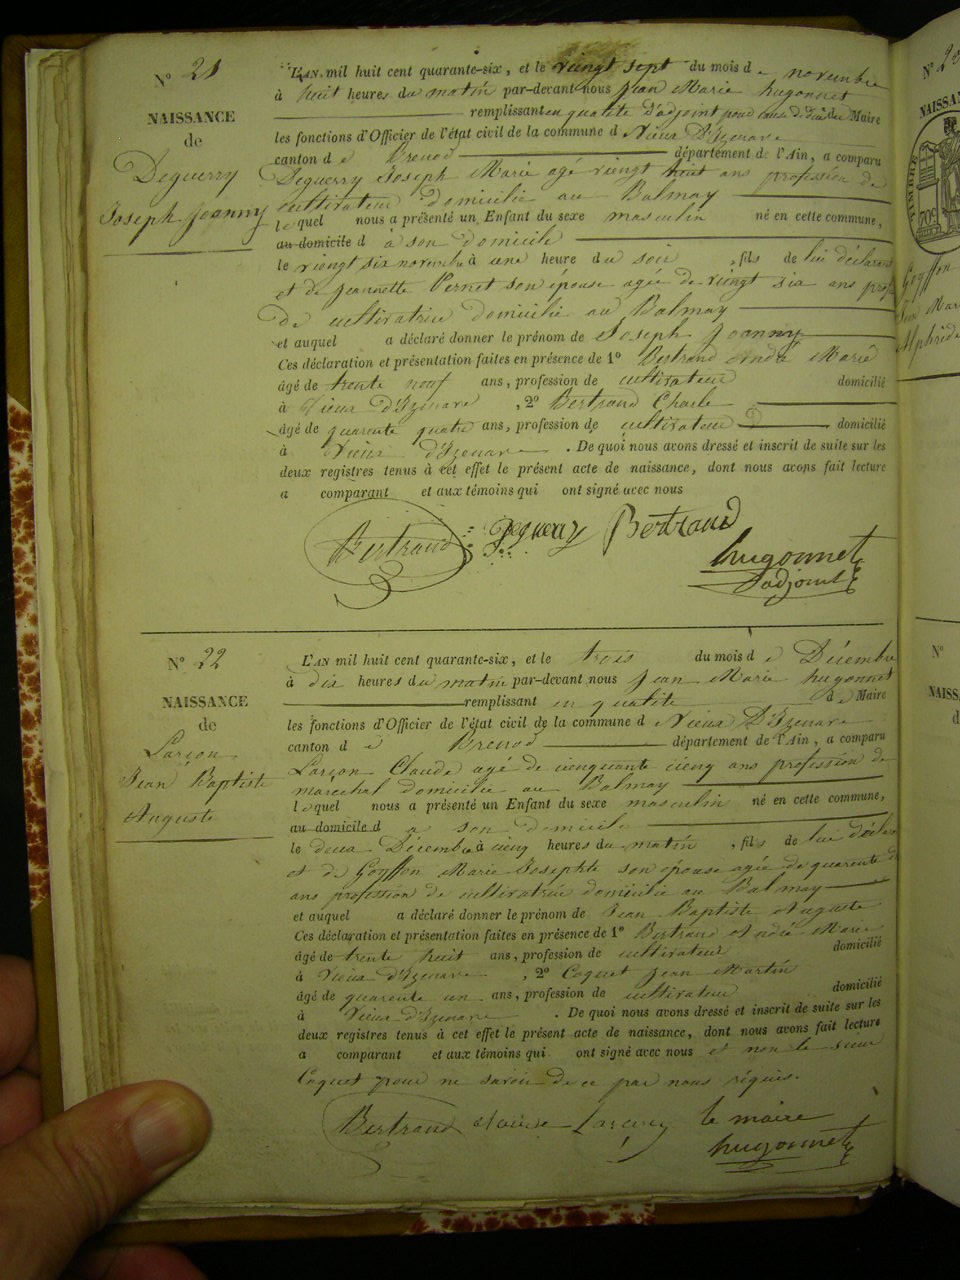 N° 21
NAISSANCE
de
Deguerry
Joseph Joanny
L'AN mil huit cent quarante-six, et le veingt sept du mois d e novembre
à huit heures du matin par-devant nous Jean Marie hugonnet
remplissant en qualité d'adjoint pour Maire
les fonctions d'Officier de l'état civil de la commune d Vieux D'Izenave
canton d e Brenod département de l'Ain, a comparu
Deguerry Joseph Marie agé veingt huit ans profession de
cultivateur domicilié au Balmay
lequel nous a présenté un Enfant du sexe masculin né en cette commune,
au domicile d à son domicile
le viengt six novembre à une heure du soir , fils de lui déclarant
et de Jeannette Vernet son épouse agée de veingt six ans prof
De cultivatrice domicilié au Balmay
et auquel a déclaré donner le prénom de Joseph Joanny
Ces déclaration et présentation faites en présence de 1° Bertrand André Marie
âgé de trente neuf ans, profession de cultivateur domicilié
à Vieux d'Izenave , 2° Bertrand Charle
âgé de quarente quatre ans, profession de cultivateur domicilié
à Vieux d'Izenave . De quoi nous avons dressé et inscrit de suite sur les
deux registres tenus à cet effet le présent acte de naissance, dont nous avons fait lecture
a comparant et aux témoins qui ont signé avec nous
Bertrand Deguerry Bertrand
hugonnet
adjoint
N° 22
NAISSANCE
de
Larçon
Jean Baptiste
Auguste
L'AN mil huit cent quarante-six, et le trois du mois d e Décembre
à dix heures du matin par-devant nous Jean Marie hugonnet
remplissant en qualité de Maire
les fonctions d'Officier de l'état civil de la commune d Vieux D'Izenave
canton d e Brenod département de l'Ain, a comparu
Larçon Claude agé de cienquante cienq ans profession de
maréchal domicilié au Balmay
lequel nous a présenté un Enfant du sexe masculin né en cette commune,
au domicile d a son domicile
le deux Décembre à cienq heures du matin , fils de lui déclar
et de Goyffon Marie Josephte son épouse agée de quarente
ans profession de cultivatrice domicilié au Balmay
et auquel a déclaré donner le prénom de Jean Baptiste Auguste
Ces déclaration et présentation faites en présence de 1° Bertrand André Marie
âgé de trente huit ans, profession de cultivateur domicilié
à Vieux d'Izenave , 2° Coquet Jean Martin
âgé de quarente un ans, profession de cultivateur domicilié
à Vieux d'Izenave . De quoi nous avons dressé et inscrit de suite sur les
deux registres tenus à cet effet le présent acte de naissance, dont nous avons fait lecture
a comparant et aux témoins qui ont signé avec nous et non le sieur
Coquet pour ne savoir de ce par nous réquis.
Bertrand Larçon le maire
hugonnet
N° 2
NAISSAN
TIMBRE
Goyffon
Jean Mar
Alphréde
N°
NAISS
d